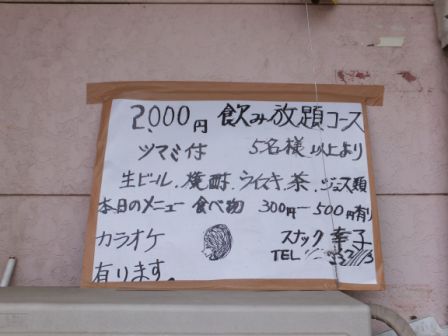 2,000円 飲み放題コース
ツマミ付 5名様以上より
生ビール、焼酎、ウイスキ、茶、ジュース類
本日のメニュー 食べ物 300円ー500円有り
カラオケ スナック 幸子
有ります。 TEL